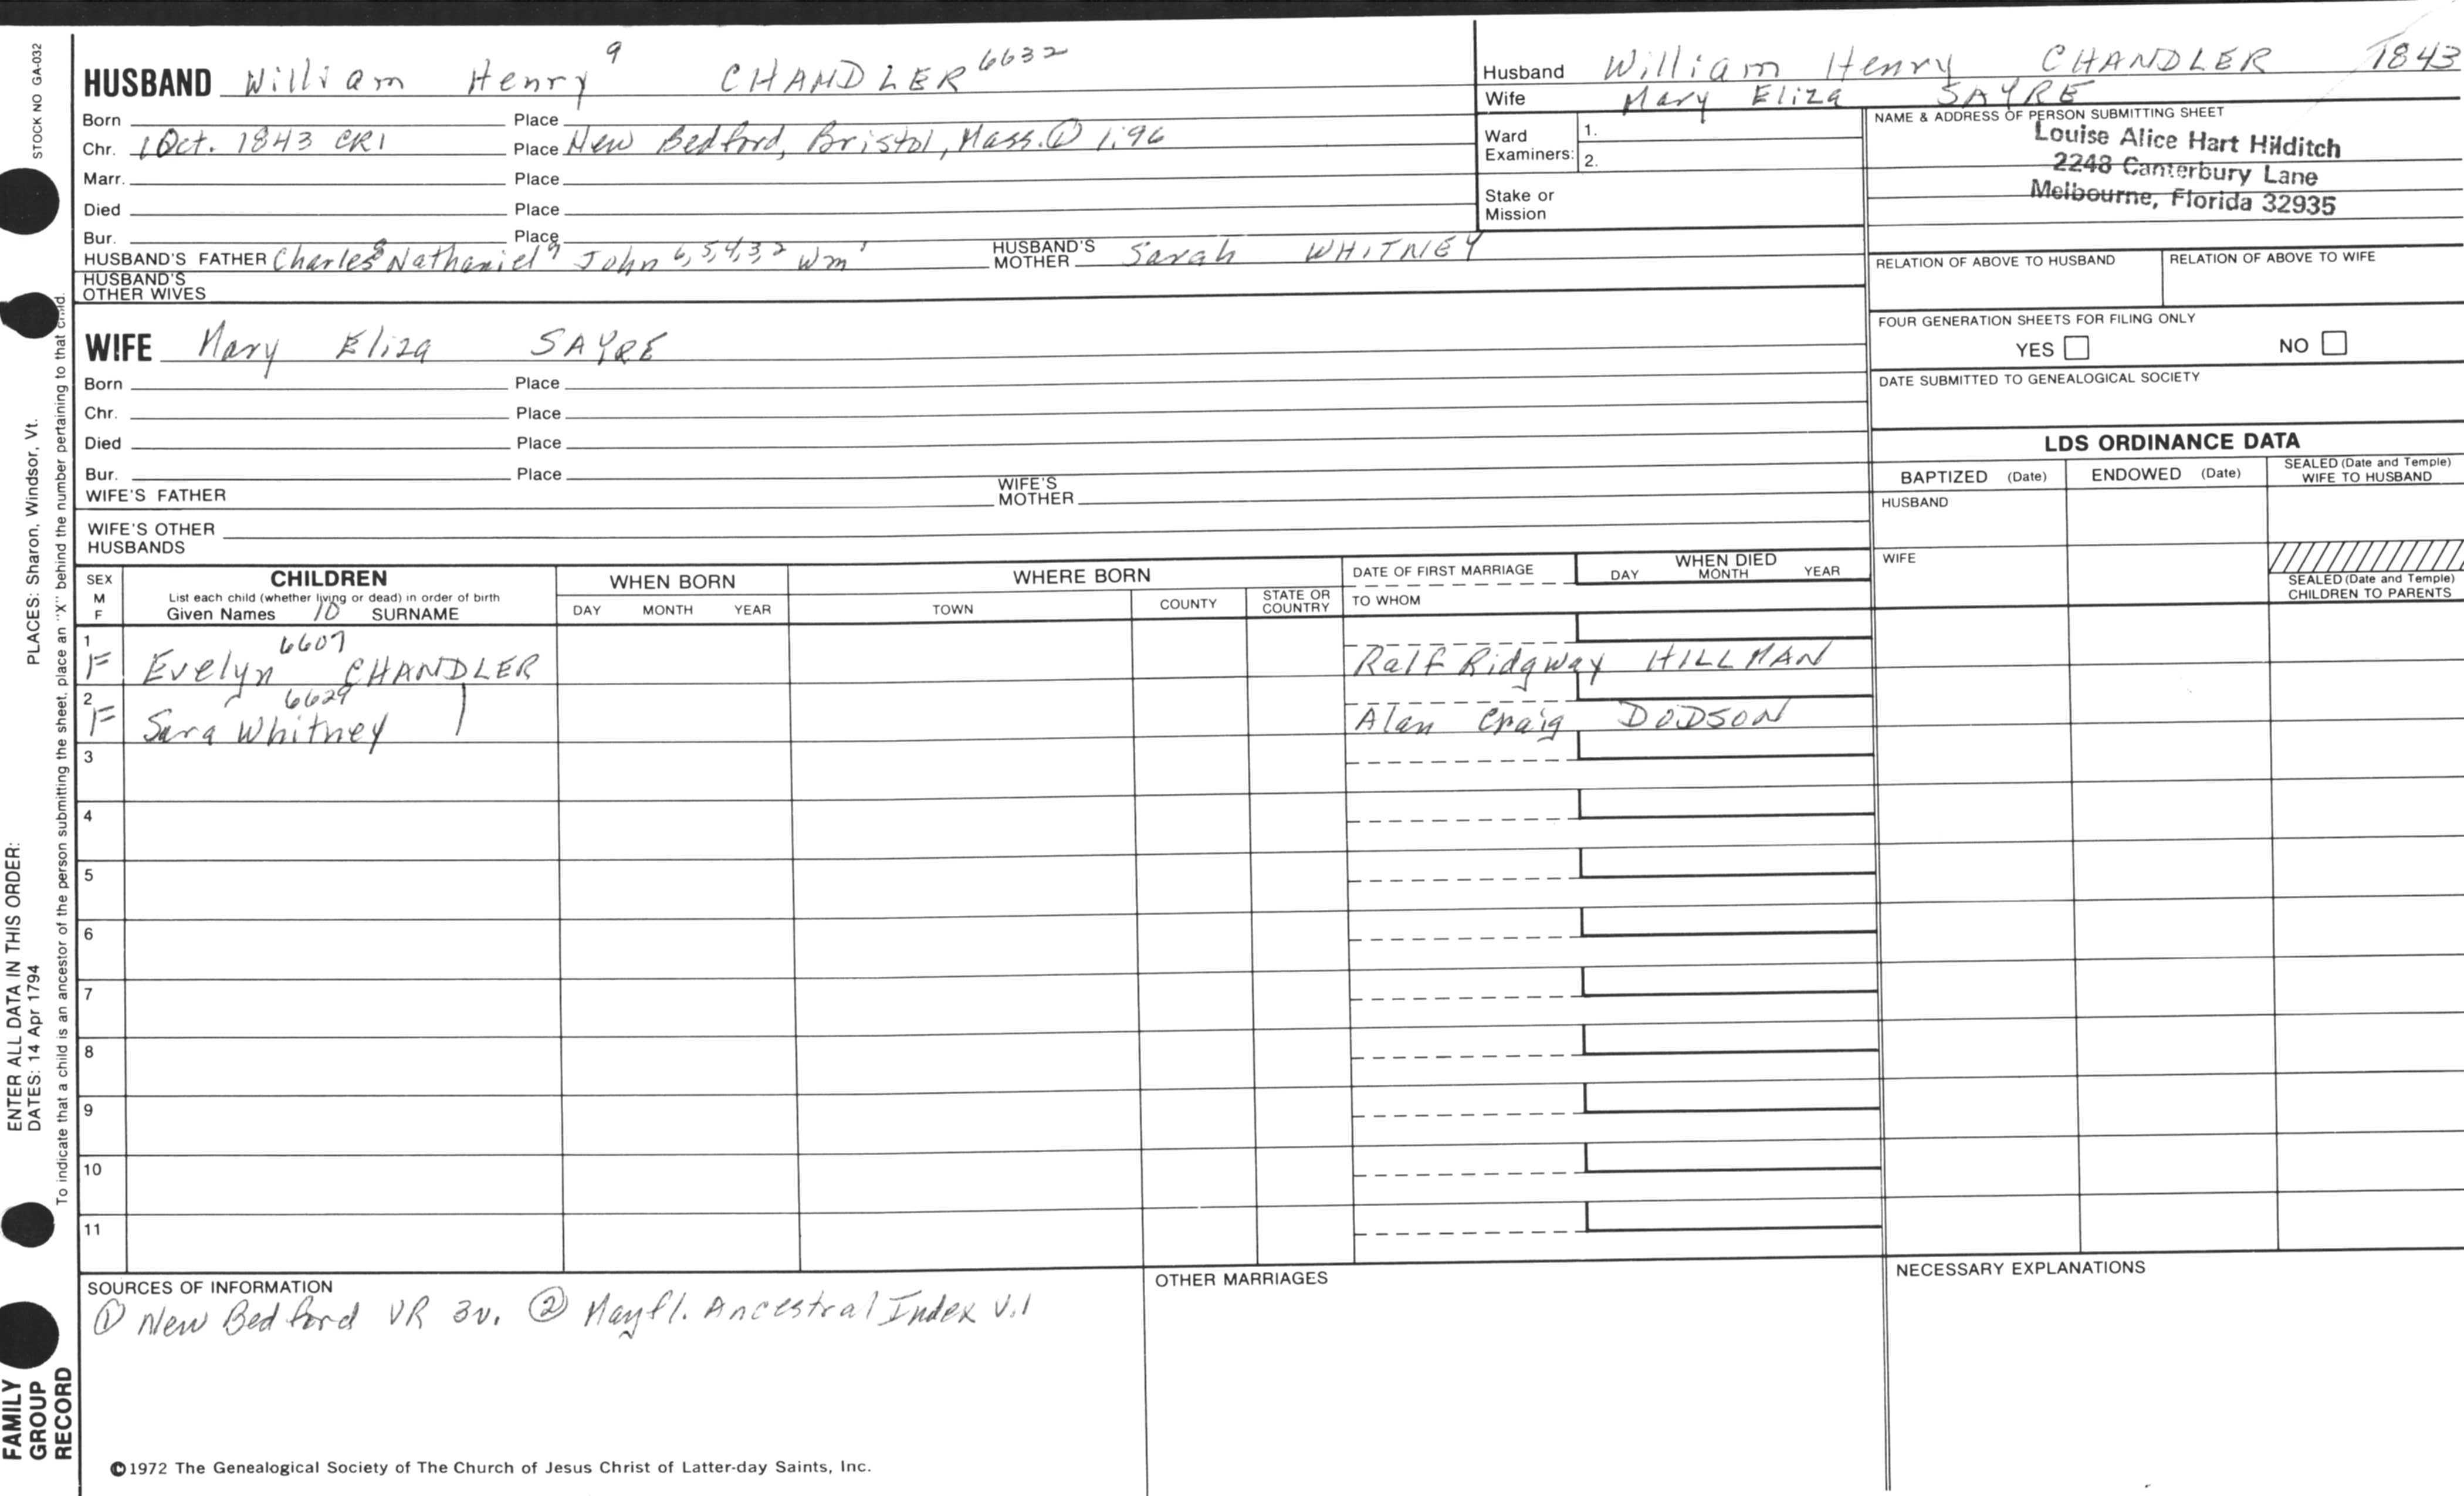 STOCK NO GA-032
PLACES: Sharon, Windsor, Vt.
ENTER ALL DATA IN THIS ORDER:
DATES: 14 Apr 1794
To indicate that a child is an ancestor of the person submitting the sheet, place an "X" behind the number pertaining to that child.
FAMILY
GROUP
RECORD
HUSBAND William Henry 9 CHANDLER 6632
Born Place
Chr. 1 Oct. 1843 CR1 Place New Bedford, Bristol, Mass. ① 1:96
Marr. Place
Died Place
Bur. Place
HUSBAND'S FATHER Charles 8 Nathaniel 7 John 6,5,4,3,2 Wm 1 HUSBAND'S MOTHER Sarah WHITNEY
HUSBAND'S
OTHER WIVES
WIFE Mary Eliza SAYRE
Born Place
Chr. Place
Died Place
Bur. Place
WIFE'S FATHER WIFE'S MOTHER
WIFE'S OTHER
HUSBANDS
Husband William Henry CHANDLER 1843
Wife Mary Eliza SAYRE
Ward Examiners: 1.
2.
Stake or
Mission
NAME & ADDRESS OF PERSON SUBMITTING SHEET
Louise Alice Hart Hilditch
2248 Canterbury Lane
Melbourne, Florida 32935
RELATION OF ABOVE TO HUSBAND RELATION OF ABOVE TO WIFE
FOUR GENERATION SHEETS FOR FILING ONLY
YES NO
DATE SUBMITTED TO GENEALOGICAL SOCIETY
LDS ORDINANCE DATA
BAPTIZED (Date) ENDOWED (Date) SEALED (Date and Temple) WIFE TO HUSBAND
HUSBAND
WIFE
SEALED (Date and Temple)
CHILDREN TO PARENTS
SEX
M
F
CHILDREN
List each child (whether living or dead) in order of birth
Given Names 10 SURNAME
WHEN BORN
DAY MONTH YEAR
WHERE BORN
TOWN COUNTY STATE OR COUNTRY
DATE OF FIRST MARRIAGE
TO WHOM
WHEN DIED
DAY MONTH YEAR
1 F Evelyn 6607 CHANDLER Ralf Ridgway HILLMAN
2 F Sara Whitney 6629 Alan Craig DODSON
3
4
5
6
7
8
9
10
11
SOURCES OF INFORMATION
① New Bedford VR 3v. ② Mayfl. Ancestral Index v.1
OTHER MARRIAGES
NECESSARY EXPLANATIONS
©1972 The Genealogical Society of The Church of Jesus Christ of Latter-day Saints, Inc.